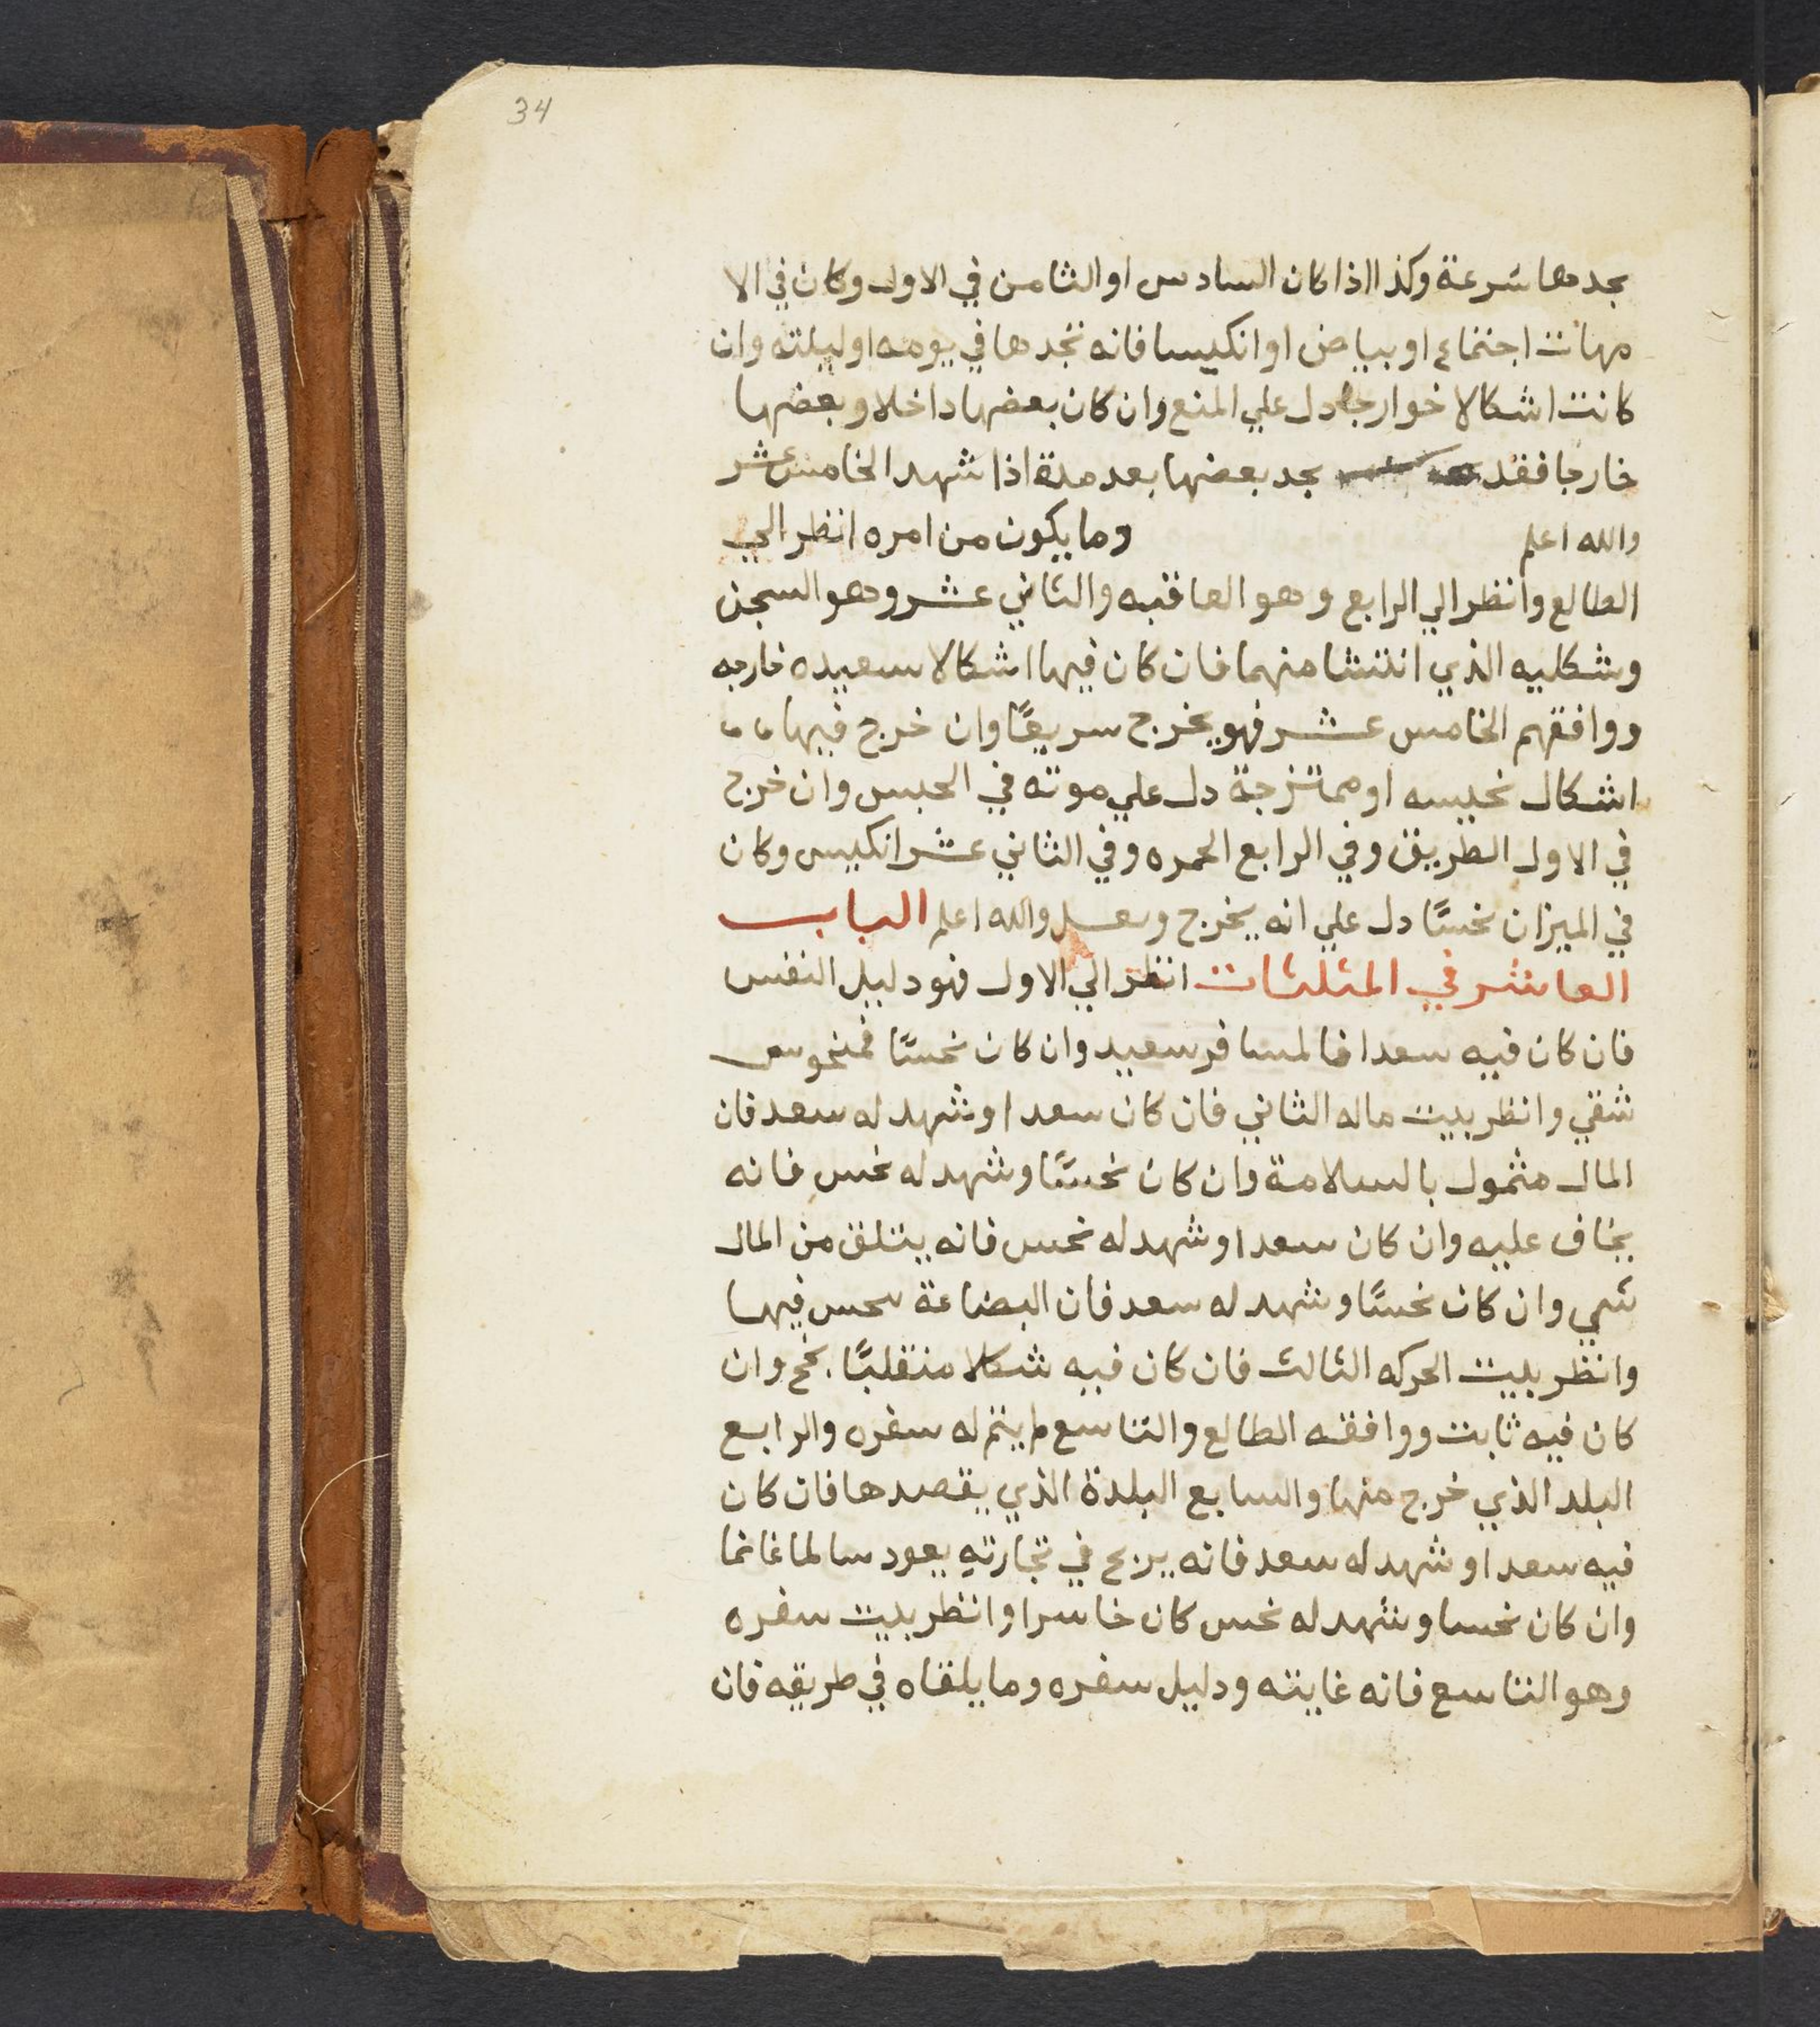 34
يجدها سرعة وكذا اذا كان السادس او الثامن في الاول وكان في الا
مهات اجتماع او بياض او انكيسا فانه يجدها في يومه او ليلته وان
كانت اشكالا خوارجا دل علي المنع وان كان بعضها داخلا وبعضها
خارجا فقد يجد بعضها بعد مدة اذا شهد الخامس عشر
والله اعلم وما يكون من امره انظر الي
الطالع وانظر الي الرابع وهو العاقبه والثاني عشر وهو السجن
وشكليه الذي انتشا منهما فان كان فيها اشكالا سعيده خارجه
ووافقهم الخامس عشر فهو يخرج سريعًا وان خرج فيها
اشكال نحيسه او ممتزجة دل علي موته في الحبس وان خرج
في الاول الطريق وفي الرابع الحمره وفي الثاني عشر انكيس وكان
في الميزان نحسًا دل علي انه يخرج والله اعلم الباب
العاشر في المثلثات انظر الي الاول فهو دليل النفس
فان كان فيه سعدا فالمسافر سعيد وان كان نحسًا فمنحوس
شقي وانظر بيت ماله الثاني فان كان سعدا وشهد له سعد فان
المال مثمول بالسلامة وان كان نحسًا وشهد له نحس فانه
يخاف عليه وان كان سعدا وشهد له نحس فانه يتلف من المال
شي وان كان نحسًا وشهد له سعد فان البضاعة فيها
وانظر بيت الحركه الثالث فان كان فيه شكلا منقلبًا نجح وان
كان فيه ثابت ووافقه الطالع والتاسع لم يتم له سفره والرابع
البلد الذي خرج منها والسابع البلدة الذي يقصدها فان كان
فيه سعدا وشهد له سعد فانه يربح في تجارته يعود سالما غانما
وان كان نحسا وشهد له نحس كان خاسرا وانظر بيت سفره
وهو التاسع فانه غايته ودليل سفره وما يلقاه في طريقه فان